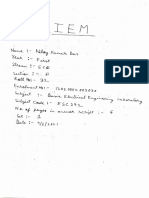 IEM
Name :- Nilay Kumar Das
Year :- First
Stream :- ECE
Section :- A
Roll No :- 92
Enrollment No :-
Subject :- Basic Electrical Engineering Laboratory
Subject Code :- ESC291
No of Pages in answer script :- 6
Set :- 1
Date :-